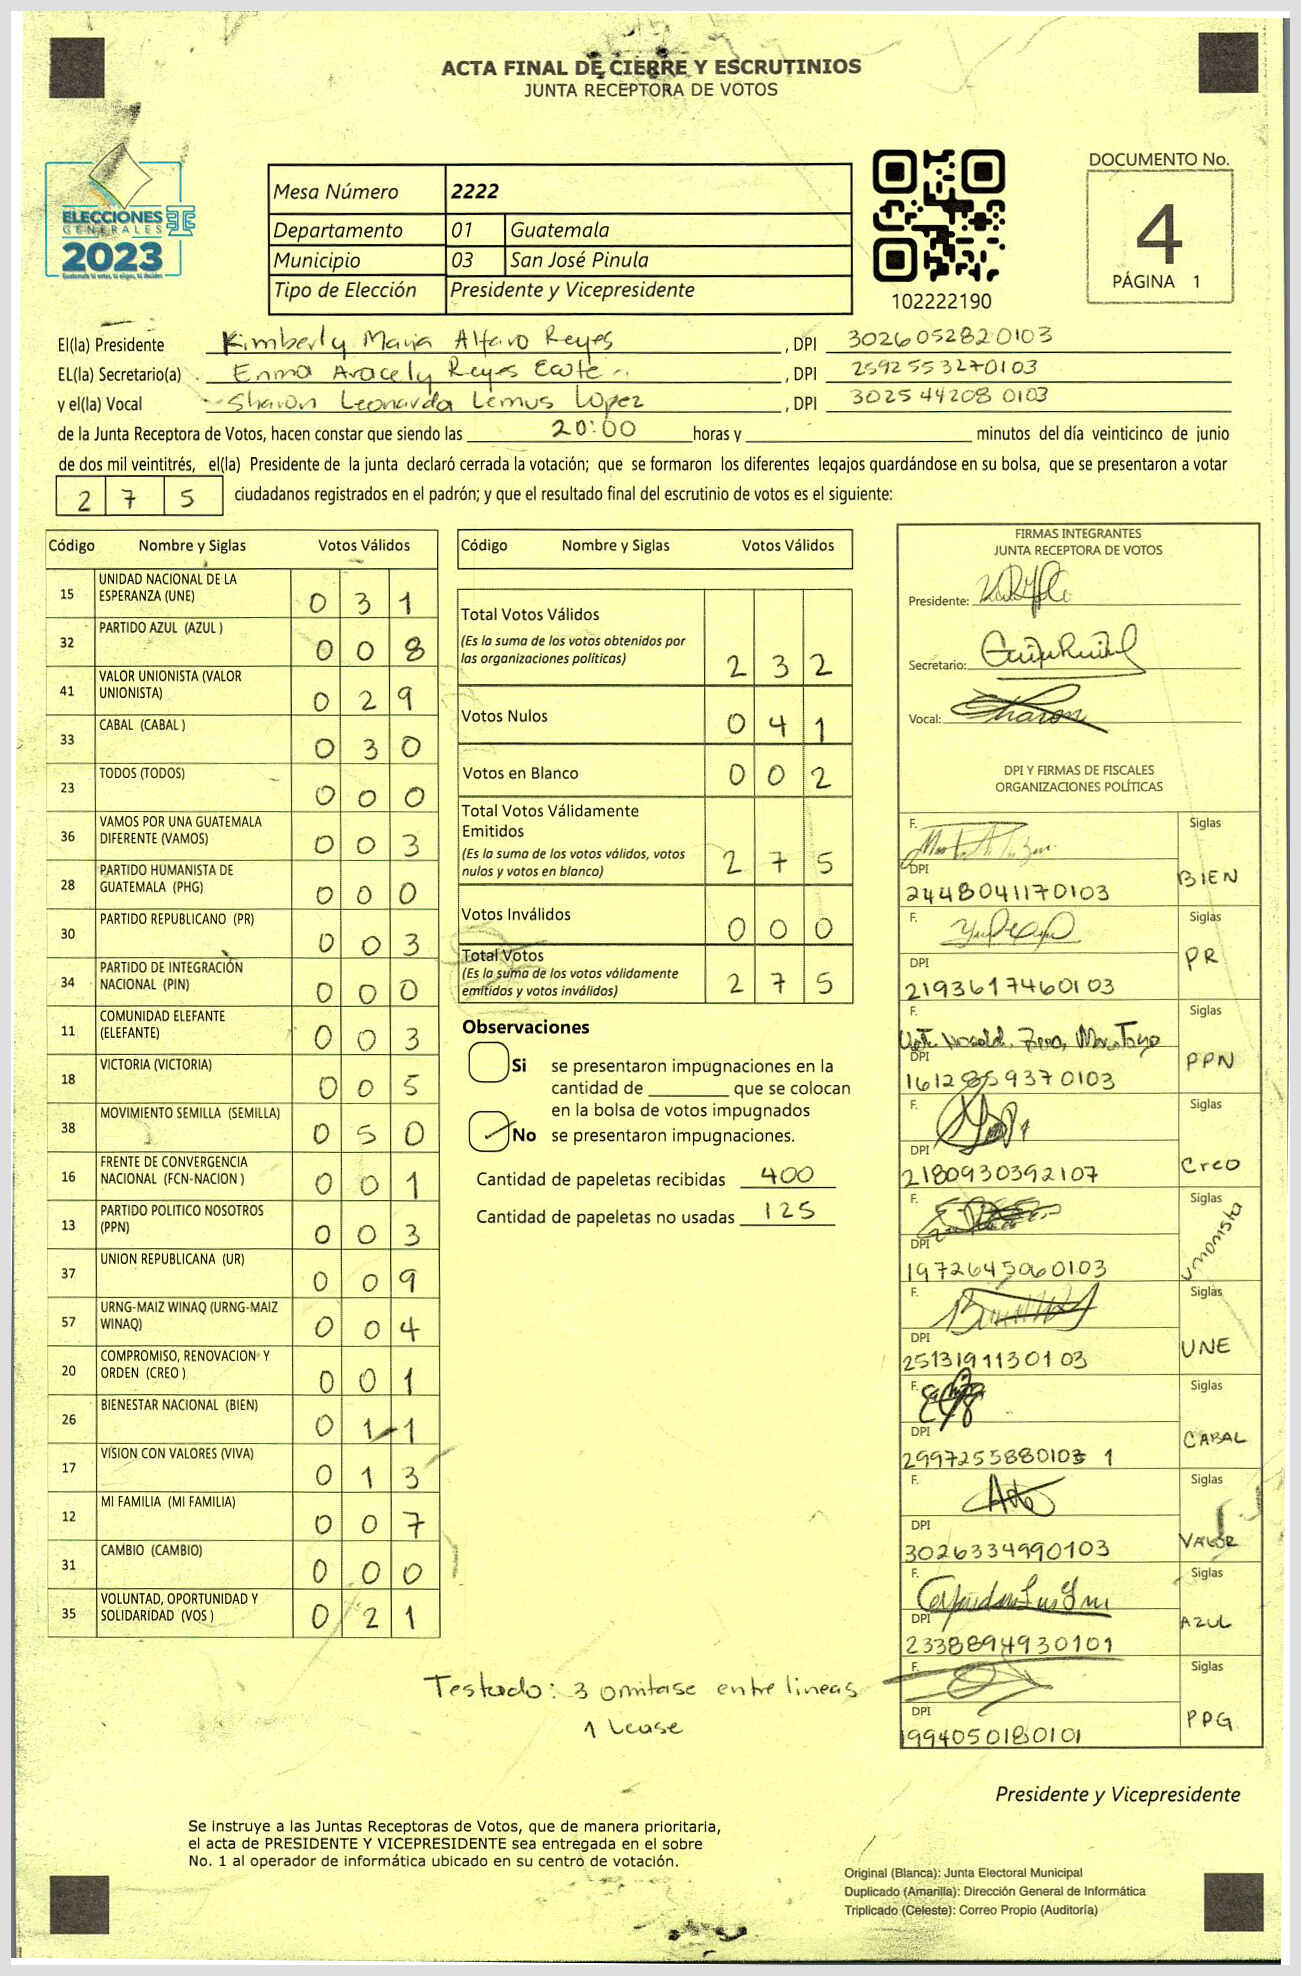 ACTA FINAL DE CIERRE Y ESCRUTINIOS
JUNTA RECEPTORA DE VOTOS
ELECCIONES
GENERALES
2023
Mesa Número 2222
Departamento 01 Guatemala
Municipio 03 San José Pinula
Tipo de Elección Presidente y Vicepresidente
102222190
DOCUMENTO No.
4
PÁGINA 1
El(la) Presidente Kimberly Maria Alfaro Reyes, DPI 3026052820103
EL(la) Secretario(a) Enma Aracely Reyes, DPI 2592553270103
y el(la) Vocal Sharon Leonarda Lemus Lopez, DPI 3025442080103
de la Junta Receptora de Votos, hacen constar que siendo las 20:00 horas y minutos del día veinticinco de junio
de dos mil veintitrés, el(la) Presidente de la junta declaró cerrada la votación; que se formaron los diferentes legajos guardándose en su bolsa, que se presentaron a votar
275 ciudadanos registrados en el padrón; y que el resultado final del escrutinio de votos es el siguiente:
Código Nombre y Siglas Votos Válidos
15 UNIDAD NACIONAL DE LA ESPERANZA (UNE) 031
32 PARTIDO AZUL (AZUL ) 008
41 VALOR UNIONISTA (VALOR UNIONISTA) 029
33 CABAL (CABAL ) 030
23 TODOS (TODOS) 000
36 VAMOS POR UNA GUATEMALA DIFERENTE (VAMOS) 003
28 PARTIDO HUMANISTA DE GUATEMALA (PHG) 000
30 PARTIDO REPUBLICANO (PR) 003
34 PARTIDO DE INTEGRACIÓN NACIONAL (PIN) 000
11 COMUNIDAD ELEFANTE (ELEFANTE) 003
18 VICTORIA (VICTORIA) 005
38 MOVIMIENTO SEMILLA (SEMILLA) 050
16 FRENTE DE CONVERGENCIA NACIONAL (FCN-NACION ) 001
13 PARTIDO POLITICO NOSOTROS (PPN) 003
37 UNION REPUBLICANA (UR) 009
57 URNG-MAIZ WINAQ (URNG-MAIZ WINAQ) 004
20 COMPROMISO, RENOVACION Y ORDEN (CREO ) 001
26 BIENESTAR NACIONAL (BIEN) 011
17 VISION CON VALORES (VIVA) 013
12 MI FAMILIA (MI FAMILIA) 007
31 CAMBIO (CAMBIO) 000
35 VOLUNTAD, OPORTUNIDAD Y SOLIDARIDAD (VOS ) 021
Código Nombre y Siglas Votos Válidos
Total Votos Válidos
(Es la suma de los votos obtenidos por
las organizaciones políticas) 232
Votos Nulos 041
Votos en Blanco 002
Total Votos Válidamente
Emitidos
(Es la suma de los votos válidos, votos
nulos y votos en blanco) 275
Votos Inválidos 000
Total Votos
(Es la suma de los votos válidamente
emitidos y votos inválidos) 275
Observaciones
Si se presentaron impugnaciones en la
cantidad de que se colocan
en la bolsa de votos impugnados
No se presentaron impugnaciones.
Cantidad de papeletas recibidas 400
Cantidad de papeletas no usadas 125
FIRMAS INTEGRANTES
JUNTA RECEPTORA DE VOTOS
Presidente:
Secretario:
Vocal: Sharon
DPI Y FIRMAS DE FISCALES
ORGANIZACIONES POLÍTICAS
F. Siglas
DPI BIEN
2448041170103
F. Siglas
DPI PR
2193617460103
F. Siglas
DPI PPN
1612859370103
F. Siglas
DPI Creo
2180930392107
F. Siglas
DPI Unionista
1972645060103
F. Siglas
DPI UNE
2513191130103
F. Siglas
DPI CABAL
2997255880103 1
F. Siglas
DPI VALOR
3026334990103
F. Siglas
DPI AZUL
2338894930101
F. Siglas
DPI PPG
1994050180101
Testado: 3 omitase entre lineas
1 Lease
Presidente y Vicepresidente
Se instruye a las Juntas Receptoras de Votos, que de manera prioritaria,
el acta de PRESIDENTE Y VICEPRESIDENTE sea entregada en el sobre
No. 1 al operador de informática ubicado en su centro de votación.
Original (Blanca): Junta Electoral Municipal
Duplicado (Amarilla): Dirección General de Informática
Triplicado (Celeste): Correo Propio (Auditoría)